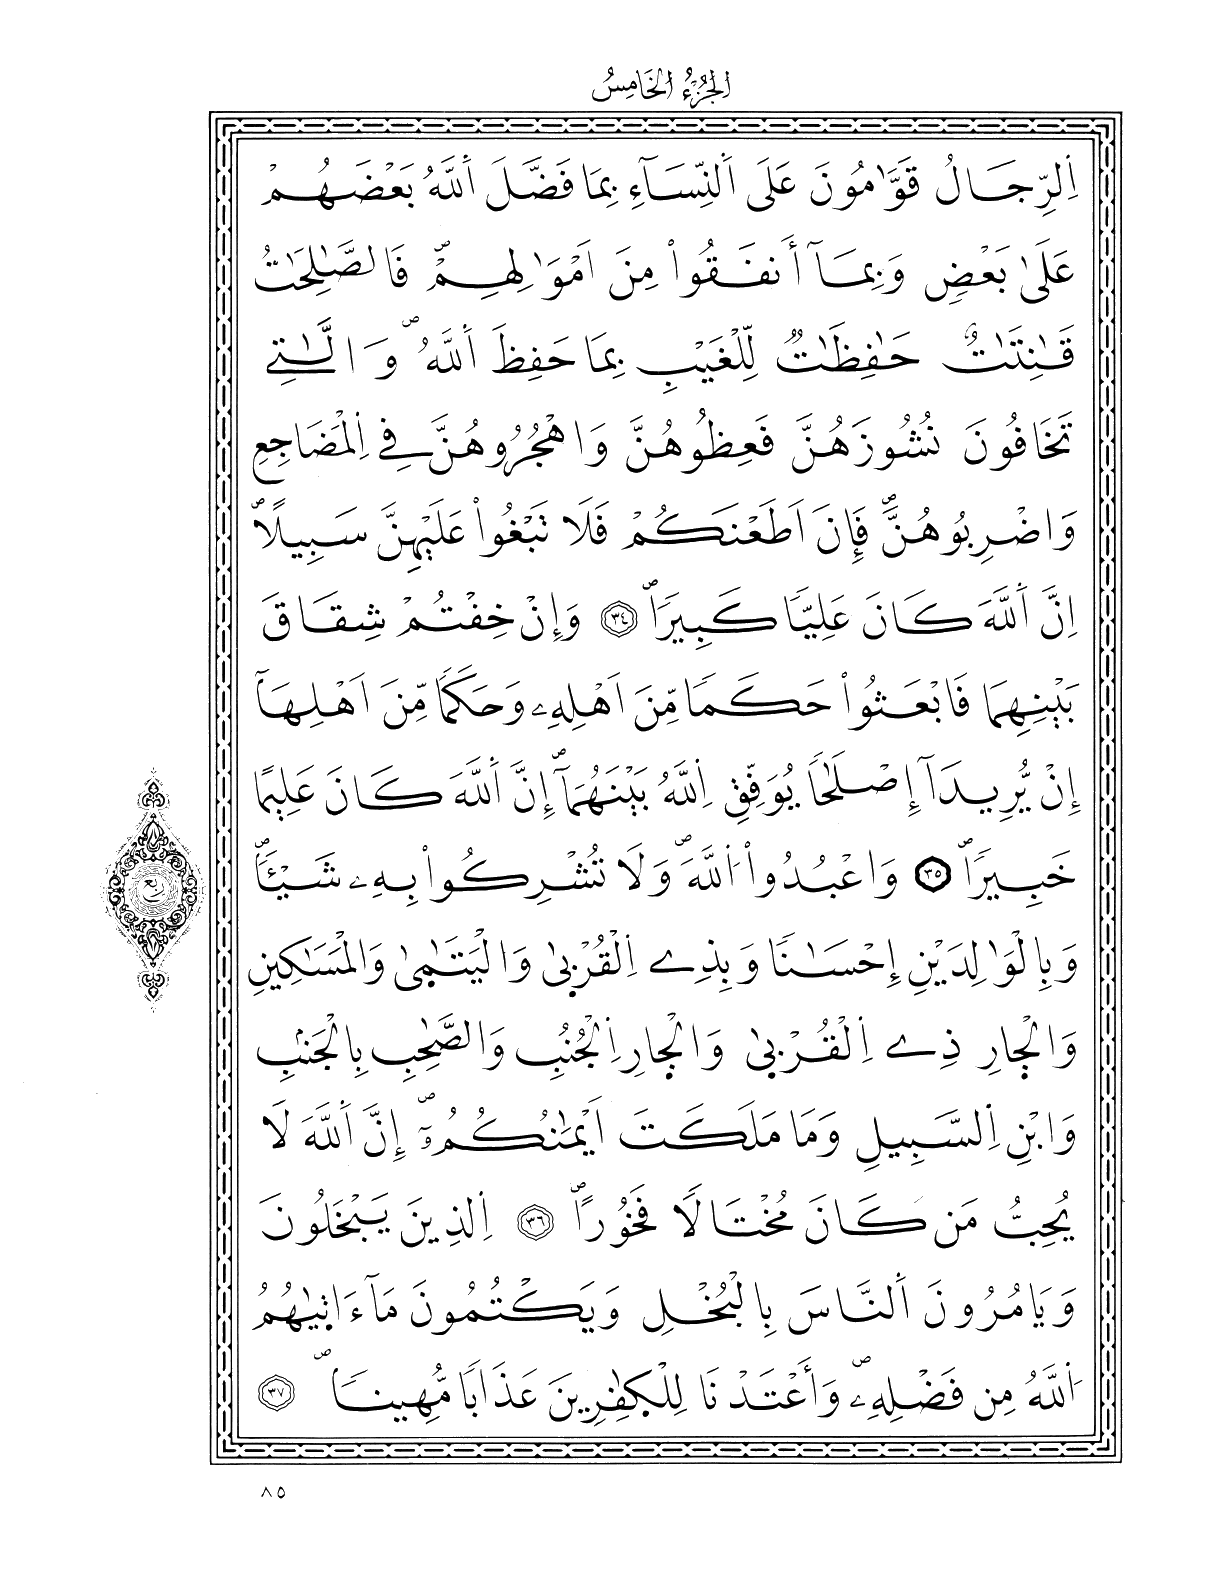 الجُزْءُ الخَامِسُ
اَ۬لرِّجَالُ قَوَّٰمُونَ عَلَى اَ۬لنِّسَآءِ بِمَا فَضَّلَ اَ۬للَّهُ بَعْضَهُمْ
عَلَىٰ بَعْضٖ وَبِمَآ أَنفَقُواْ مِنَ اَمْوَٰلِهِمْۖ فَالصَّٰلِحَٰتُ
قَٰنِتَٰتٌ حَٰفِظَٰتٞ لِّلْغَيْبِ بِمَا حَفِظَ اَ۬للَّهُۖ وَالَّٰتِے
تَخَافُونَ نُشُوزَهُنَّ فَعِظُوهُنَّ وَاهْجُرُوهُنَّ فِے اِ۬لْمَضَاجِعِ
وَاضْرِبُوهُنَّۖ فَإِنَ اَطَعْنَكُمْ فَلَا تَبْغُواْ عَلَيْهِنَّ سَبِيلاًۖ
اِنَّ اَ۬للَّهَ كَانَ عَلِيّاٗ كَبِيراٗۖ ٣٤ وَإِنْ خِفْتُمْ شِقَاقَ
بَيْنِهِمَا فَابْعَثُواْ حَكَماٗ مِّنَ اَهْلِهِۦ وَحَكَماٗ مِّنَ اَهْلِهَآ
إِنْ يُّرِيدَآ إِصْلَٰحاٗ يُوَفِّقِ اِ۬للَّهُ بَيْنَهُمَآۖ إِنَّ اَ۬للَّهَ كَانَ عَلِيماً
خَبِيراٗۖ ٣٥ وَاعْبُدُواْ اُ۬للَّهَۖ وَلَا تُشْرِكُواْ بِهِۦ شَيْـٔاٗۖ
وَبِالْوَٰلِدَيْنِ إِحْسَٰناٗ وَبِذِے اِ۬لْقُرْبَىٰ وَالْيَتَٰمَىٰ وَالْمَسَٰكِينِ
وَالْجَارِ ذِے اِ۬لْقُرْبَىٰ وَالْجَارِ اِ۬لْجُنُبِ وَالصَّٰحِبِ بِالْجَنۢبِ
وَابْنِ اِ۬لسَّبِيلِ وَمَا مَلَكَتَ اَيْمَٰنُكُمُۥٓۖ إِنَّ اَ۬للَّهَ لَا
يُحِبُّ مَن كَانَ مُخْتَالاٗ فَخُوراًۖ ٣٦ اِ۬لذِينَ يَبْخَلُونَ
وَيَامُرُونَ اَ۬لنَّاسَ بِالْبُخْلِ وَيَكْتُمُونَ مَآ ءَاتٜيٰهُمُ
اُ۬للَّهُ مِن فَضْلِهِۦۖ وَأَعْتَدْنَا لِلْكٰ۪فِرِينَ عَذَاباٗ مُّهِيناٗۖ ٣٧
ربع
٨٥